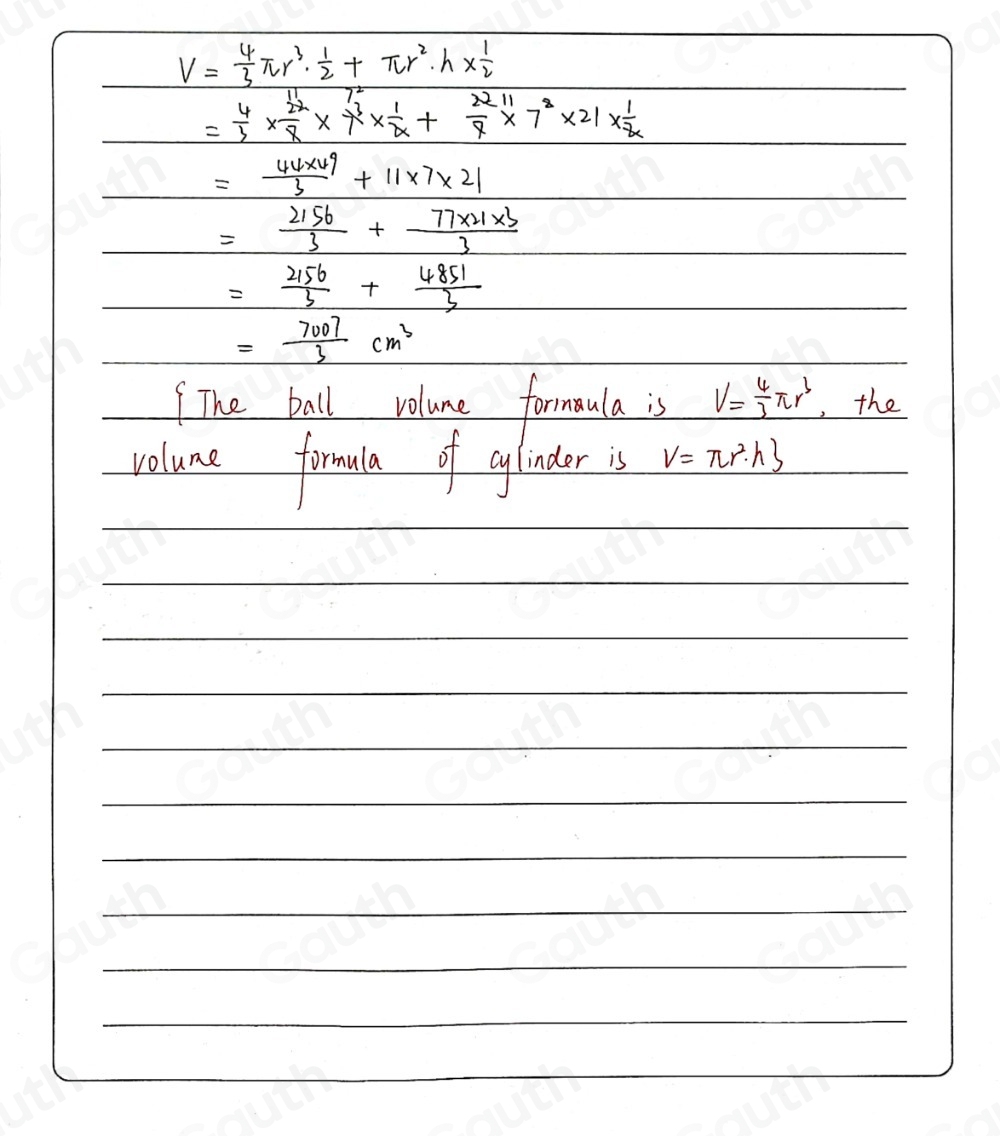 V = 4/3 πr³ · 1/2 + πr² · h × 1/2
= 4/3 × 22/7 11 × 7³ 7² × 1/2 + 22/7 11 × 7² × 21 × 1/2
= 44×49/3 + 11×7×21
= 2156/3 + 77×21×3/3
= 2156/3 + 4851/3
= 7007/3 cm³
{The ball volume formaula is V = 4/3 πr³, the
volume formula of cylinder is V = πr²·h}